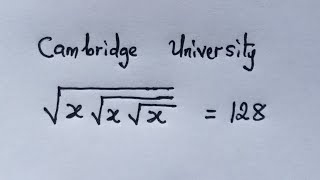 Cambridge University
√x√x√x = 128